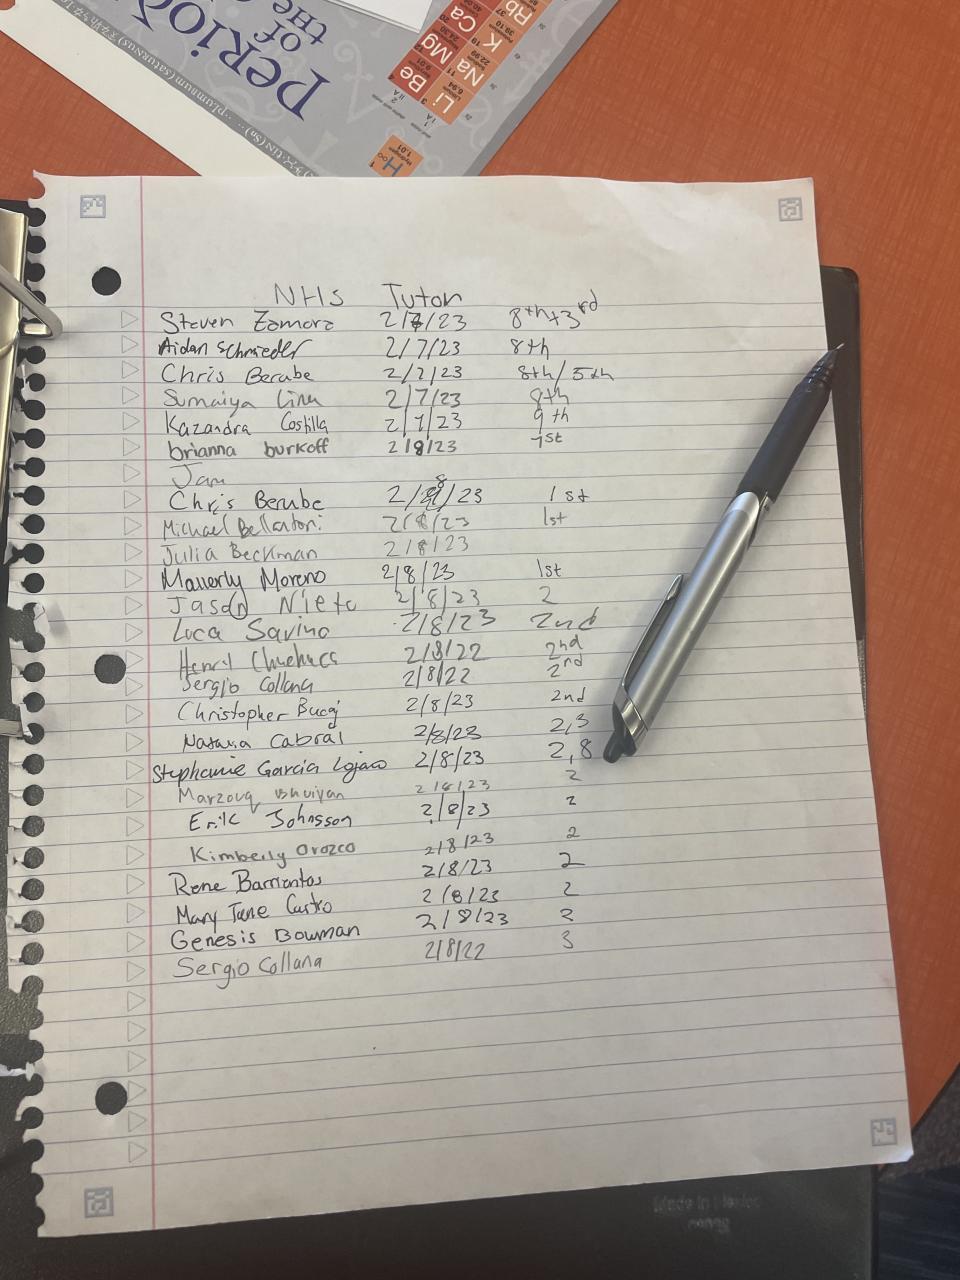 Periodic
of
THE
Rb
Ca
K
Mg
Na
Be
Li
H
Hydrogen
1.01
NHS Tutor
Steven Zamora 2/7/23 8th+3rd
Aidan Schmieder 2/7/23 8th
Chris Berube 2/7/23 8th/5th
Sumaiya 2/7/23 8th
Kazandra Costilla 2/7/23 9th
brianna burkoff 2/8/23 1st
Jam
Chris Berube 2/8/23 1st
Michael Bellantoni 2/8/23 1st
Julia Beckman 2/8/23
Mauerly Moreno 2/8/23 1st
Jason Nieto 2/8/23 2
Luca Savino 2/8/23 2nd
2/8/22 2nd
Sergio Collana 2/8/22 2nd
Christopher 2/8/23 2nd
Natalia Cabral 2/8/23 2,3
Stephanie Garcia Lojano 2/8/23 2,8
Marzouq Bhuiyan 2/8/23 2
Erik Johnsson 2/8/23 2
Kimberly Orozco 2/8/23 2
Rene Barrientos 2/8/23 2
Mary Jane Castro 2/8/23 2
Genesis Bowman 2/8/23 2
Sergio Collana 2/8/22 3